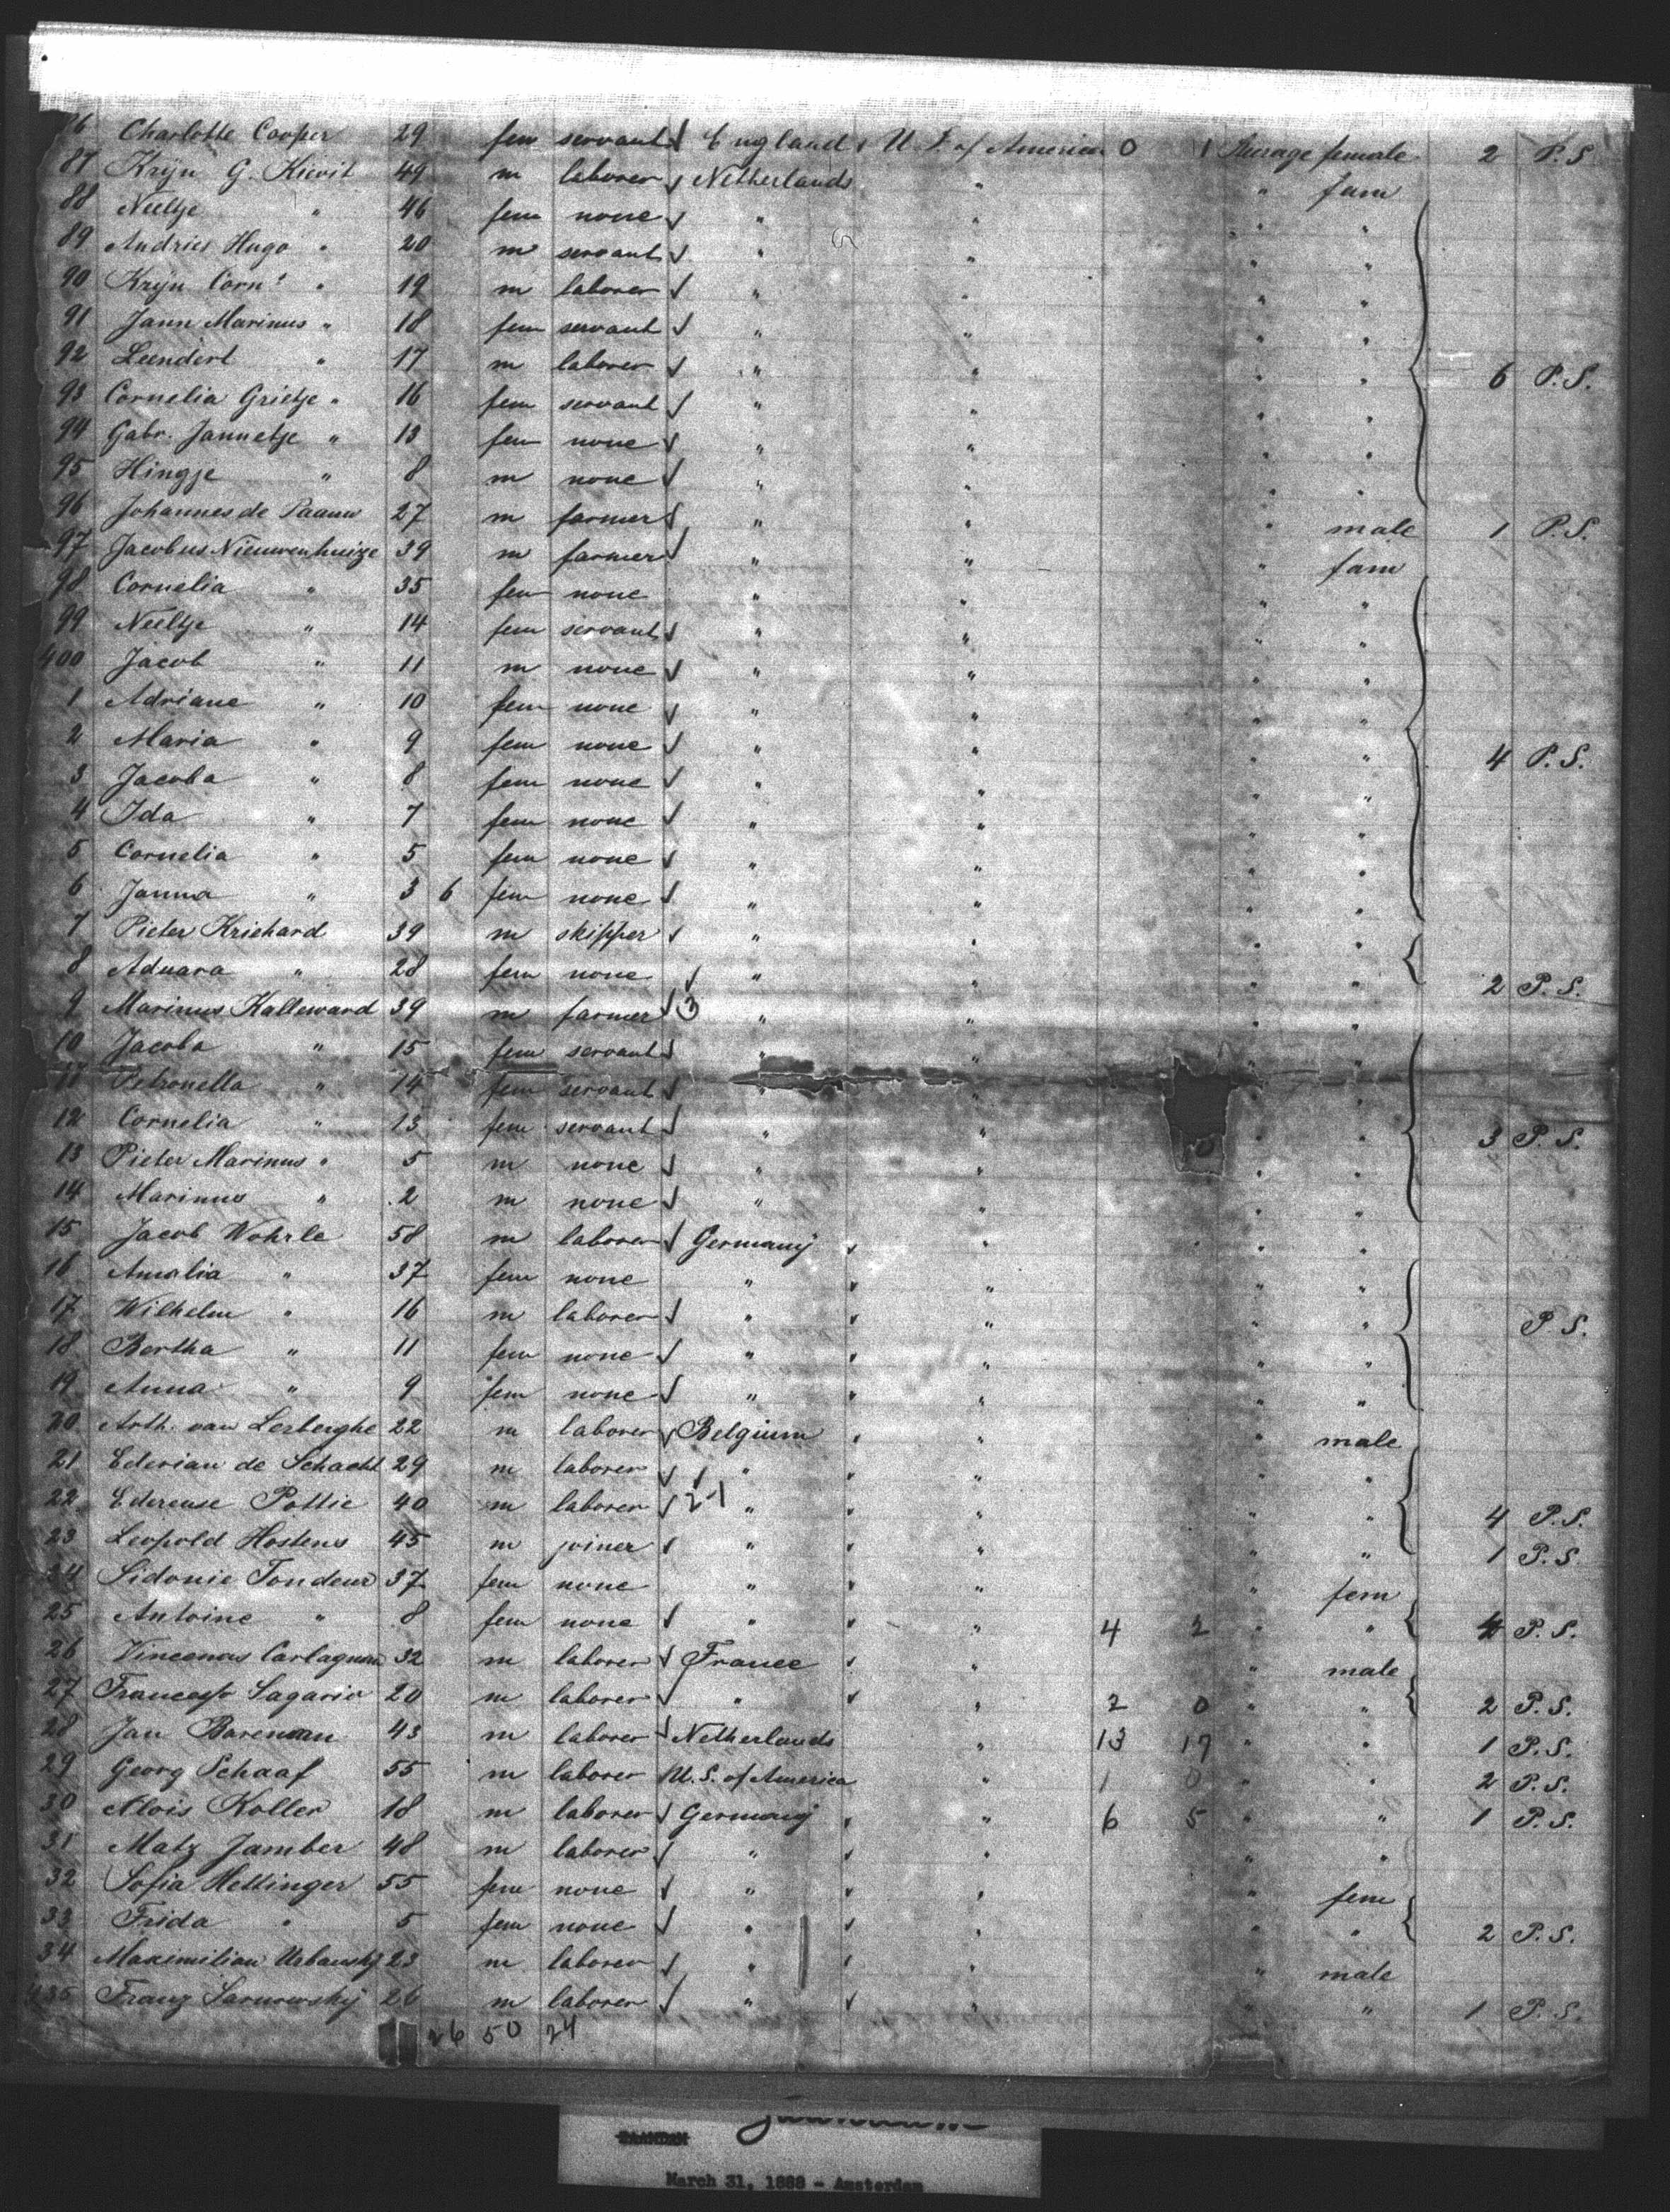 86 Charlotte Cooper 29 fem servant England U.S. of America 0 1 Steerage female 2 P.S.
87 Krijn G. Kievit 49 m laborer Netherlands " " fam
88 Neeltje " 46 fem none " " " "
89 Andries Hugo " 20 m servant " " " "
90 Krijn Corns " 19 m laborer " " " "
91 Jann Marinus " 18 fem servant " " " "
92 Leendert " 17 m laborer " " " " 6 P.S.
93 Cornelia Grietje " 16 fem servant " " " "
94 Gabr. Jannetje " 13 fem none " " " "
95 Hingje " 8 m none " " " "
96 Johannes de Paauw 27 m farmer " " " male 1 P.S.
97 Jacobus Nieuwenhuize 39 m farmer " " " fam
98 Cornelia " 35 fem none " " " "
99 Neeltje " 14 fem servant " " " "
400 Jacob " 11 m none " " " "
1 Adriane " 10 fem none " " " "
2 Maria " 9 fem none " " " " 4 P.S.
3 Jacoba " 8 fem none " " " "
4 Ida " 7 fem none " " " "
5 Cornelia " 5 fem none " " " "
6 Janna " 3 6 fem none " " " "
7 Pieter Krichard 39 m skipper " " " "
8 Aduara " 28 fem none " " " " 2 P.S.
9 Marinus Kalleward 39 m farmer 3 " " " "
10 Jacoba " 15 fem servant " " " "
11 Petronella " 14 fem servant " " "
12 Cornelia " 13 fem servant " " " " 3 P.S.
13 Pieter Marinus " 5 m none " " " "
14 Marinus " 2 m none " " " "
15 Jacob Wohrle 58 m laborer Germany " " "
16 Amalia " 37 fem none " " " "
17 Wilhelm " 16 m laborer " " " " P.S.
18 Bertha " 11 fem none " " " "
19 Anna " 9 fem none " " " "
20 Arth. van Lerberghe 22 m laborer Belgium " " male
21 Ederian de Schacht 29 m laborer " " " "
22 Edereuse Pottie 40 m laborer 21 " " " " 4 P.S.
23 Leopold Hostens 45 m joiner " " " " 1 P.S.
24 Sidonie Tondeur 37 fem none " " " fem
25 Antoine " 8 fem none " " 4 2 " " 4 P.S.
26 32 m laborer France " " male
27 Sagario 20 m laborer " " 2 0 " " 2 P.S.
28 Jan Bareman 43 m laborer Netherlands " 13 17 " " 1 P.S.
29 Georg Schaaf 55 m laborer U.S. of America " 1 0 " " 2 P.S.
30 Alois Koller 18 m laborer Germany " 6 5 " " 1 P.S.
31 Matz Jamber 48 m laborer " " " "
32 Sofia Hettinger 55 fem none " " " fem
33 Frida " 5 fem none " " " " 2 P.S.
34 Maximilian Urbansky 23 m laborer " " " male
435 Franz Sarnowskij 26 m laborer " " " " 1 P.S.
26 50 24
ZAANDAM
March 31, 1888 - Amsterdam